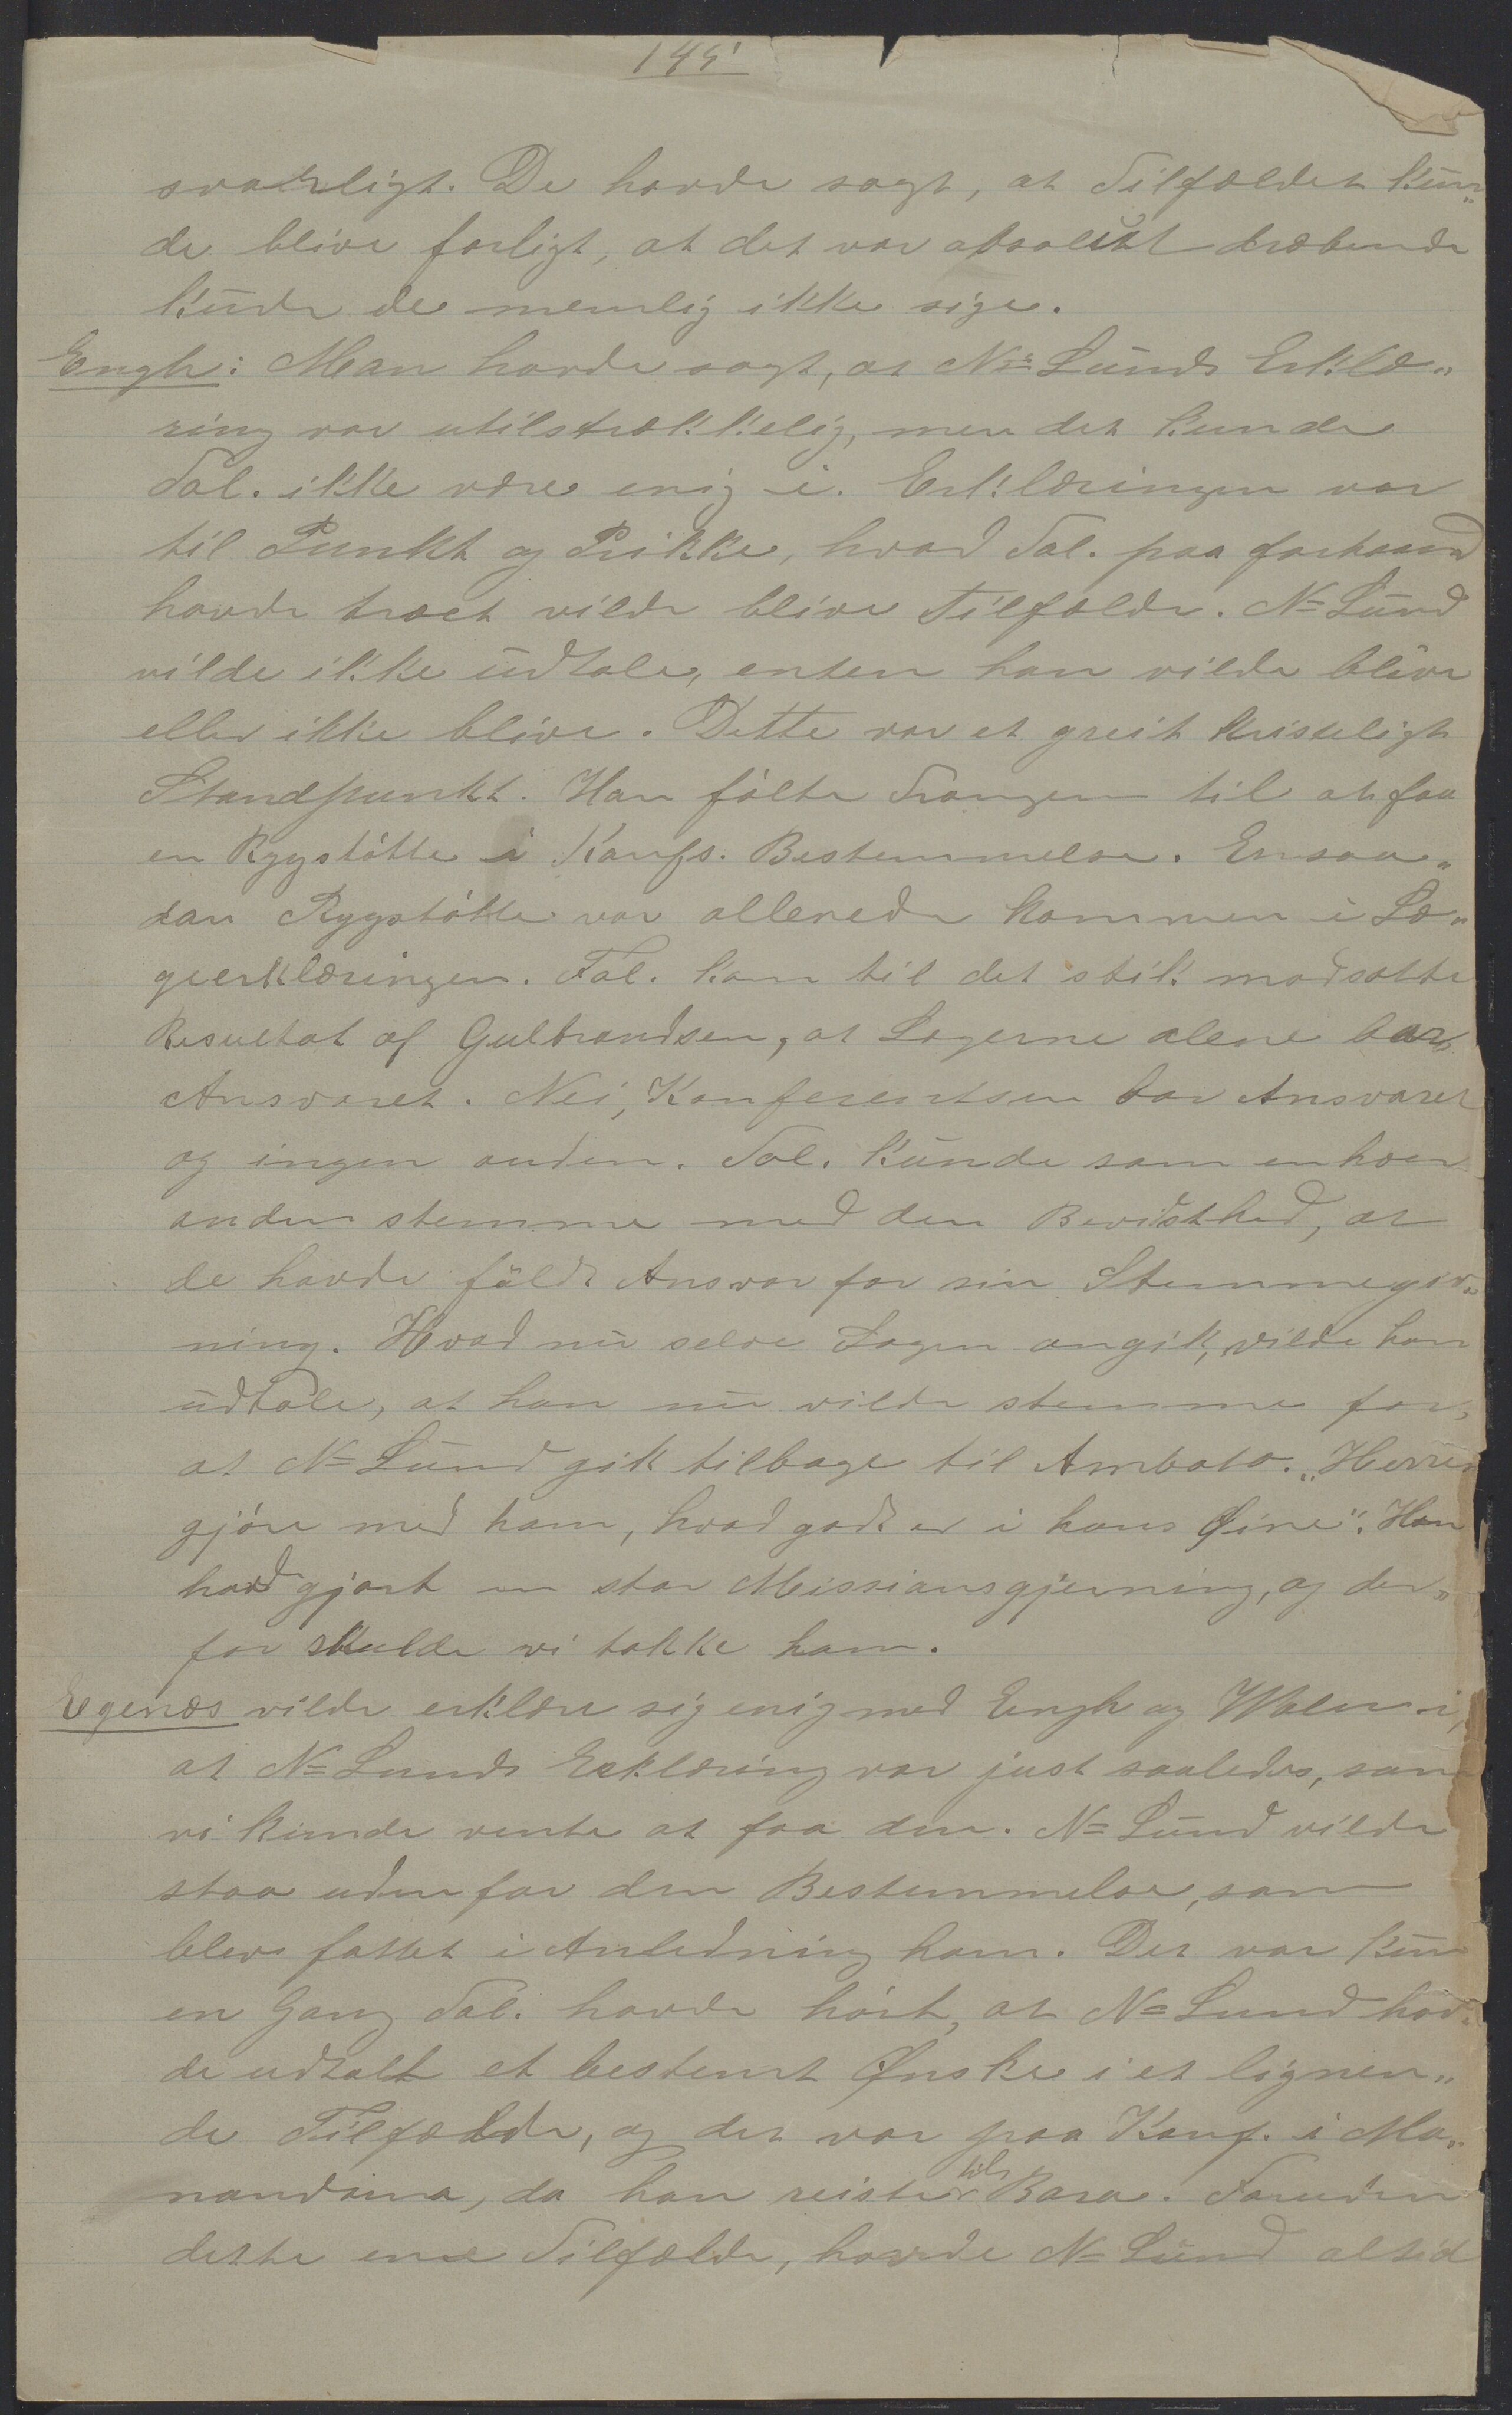 145
svarligt. De havde sagt, at Tilfældet kun„
de blive farligt, at det var absolut dræbende
kunde de nemlig ikke sige.
Engh: Man havde sagt, at N= Lunds Erklæ„
ring var utilstrækkelig, men det kunde
Tal. ikke være enig i. Erklæringen var
til Punkt og Prikke, hvad Tal. paa forhaand
havde troet vilde blive Tilfælde. N= Lund
vilde ikke udtale, enten han vilde blive
eller ikke blive. Dette var et greit kristeligt
Standpunkt. Han følte Trangen til at faa
en Rygstøtte i Konfs. Bestemmelse. En saa„
dan Rygstøtte var allerede kommen i Læ„
geerklæringen. Tal. kom til det stik modsatte
Resultat af Gulbrandsen, at Lægerne alene bar
Ansvaret. Nei, Konferentsen bar Ansvaret
og ingen anden. Tal. kunde som enhver
anden stemme med den Bevidsthed, at
de havde fuldt Ansvar for sin Stemmegiv„
ning. Hvad nu selve Sagen angik, vilde han
udtale, at han nu vilde stemme for,
at N= Lund gik tilbage til Ambato. „Herren
gjøre med ham, hvad godt er i hans Øine". Han
havd gjort en stor Missionsgjerning, og der„
for skulde vi takke ham.
Egenæs vilde erklære sig enig med Engh og Walen i,
at N= Lunds Erklæring var just saaledes, som
vi kunde vente at faa den. N= Lund vilde
staa udenfor den Bestemmelse, som
blev fattet i Anledning ham. Det var kun
en Gang Tal. havde hørt, at N= Lund hav„
de udtalt et bestemt Ønske i et lignen„
de Tilfælde, og det var paa Konf. i Ma„
nandona, da han reiste til Bara. Foruden
dette ene Tilfælde, havde N= Lund altid